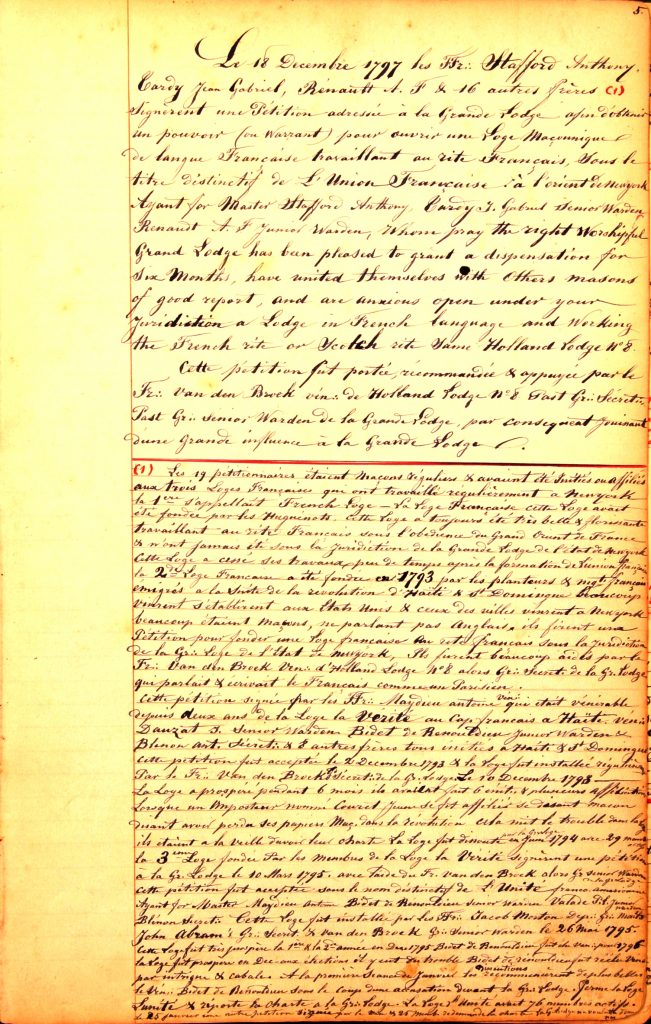 5.
Le 18 Decembre 1797 les FF∴ Stafford Anthony,
Cardy Jean Gabriel, Rénault A. F & 16 autres frères (1)
Signèrent une Pétition adressée à la Grande Lodge afin d'obtenir
un pouvoir (ou Warrant) pour ouvrir une Loge Maçonnique
de langue Francaise travaillant au rite Français, Sous le
titre distinctif de L'Union Française à l'orient de Newyork
Ayant for Master Stafford Anthony, Cardy J. Gabriel Senior Warden
Renault A. F Junior Warden, Whom pray the right Worshipful
Grand Lodge has been pleased to grant a dispensation for
Six Months, have united themselves with Others masons
of good report, and are anxious open under your
Juridiction a Lodge in French language and Working
the French rite or Scotch rite Same Holland Lodge Nº 8.
Cette pétition fut portée, recommandée & appuyée par le
Fr∴ Van den Broek vén∴ de Holland Lodge Nº 8 Past Gr∴ Secret∴,
Past Gr∴ Senior Warden de la Grande Lodge, par consequent Jouissant
dune Grande influence à la Grande Lodge.
(1) Les 19 petitionnaires étaient Maçons réguliers & avaient été Initiés ou affiliés
aux trois Loges Françaises qui ont travaillé regulièrement à Newyork
la 1ere s'appellait French Loge — La Loge Française cette Loge avait
été fondée par les Huguenots. Cette Loge a toujours été très belle & florissante
travaillant au rite Francais sous l'obédience du Grand Orient de France
& n'ont jamais été sous la juridiction de la Grande Lodge de l'état de Newyork
Cette Loge a cessé ses travaux peu de temps après la formation de l'union française
la 2de Loge Francaise a été fondée en 1793 par les planteurs & negt français
émigrés à la Suite de la revolution d'Haïti & St Domingue beaucoup
vinrent s'etablirent aux Etats Unis & ceux des villes vinrent à Newyork
beaucoup étaient Maçons, ne parlant pas Anglais, ils firent une
Pétition pour fonder une Loge francaise au rite français sous la juridiction
de la Gr∴ Loge de l'Etat de Newyork, Ils furent beaucoup aidés par le
Fr∴ Van den Broek Ven∴ d'Holland Lodge Nº 8 alors Gr∴ Secret∴ de la Gr∴ Lodge
qui parlait & écrivait le Francais comme un Parisien.
Cette pétition signée par les FF∴ Maydieu antoine Vén∴ qui était vénérable
depuis deux ans de la Loge la Verité au Cap français à Haïti. Vén∴
Dauzat J. Senior Warden Bidet de Renoulleu Junior Warden &
Blénon Ant. Secret∴ & 8 autres frères tous initiés à Haïti & St Domingue
Cette petition fut acceptée le 2 Decembre 1793 & la Loge fut installée
Par le Fr∴ Van den Broek Gd Secret∴ de la Gr∴ Lodge Le 10 Decembre 1793
La Loge a prospéré pendant 6 mois ils avaient fait 6 init∴ & plusieurs affiliations
Lorsque un Imposteur nommé Jeune se fit affilier se disant macon
disant avoir perdu ses papiers Maç∴ dans la revolution cela mit le trouble dans la Loge
ils étaient à la veille d'avoir leur charte La Loge fut dissoute en Juin 1794 avec 29
la 3eme Loge fondée Par les membres de la Loge la Verité signèrent une pétition
à la Gr∴ Lodge le 10 Mars 1795. avec l'aide du Fr. Van den Brock alors Gr∴ Senior Warden
Cette pétition fut acceptée sous le nom distinctif de L'Unité franco americaine
Ayant for Master Maydieu Antoine Bidet de Renoulleu Senior Warden Valade Junior Warden
Blénon Secret∴ Cette Loge fut installée par les FF∴ Jacob Morton Dep∴ Gr∴ Master
John Abrams Gr∴ Secret. & Van den Broek Gr∴ Senior Warden le 26 Mai 1795.
Cette Loge fut très prospère la 1ere & la 2de année en Dec 1795 Bidet de Renoulleu fut élu Ven∴ pour 1796
la Loge fut prospère en Dec aux élections il y eut du trouble Bidet de Renoulleu fut réélu Ven∴
par intrigue & cabale. A la première seance de Janvier les dissentions recommencèrent de plus belle
le Ven∴ Bidet de Renoulleu sous le coup d'une accusation devant la Gr∴ Lodge Ferme la Loge
L'unité & reporte la Charte a la Gr∴ Lodge. La Loge L'unité avait 76 membres actifs.
le 25 janvier une autre pétition signée par le